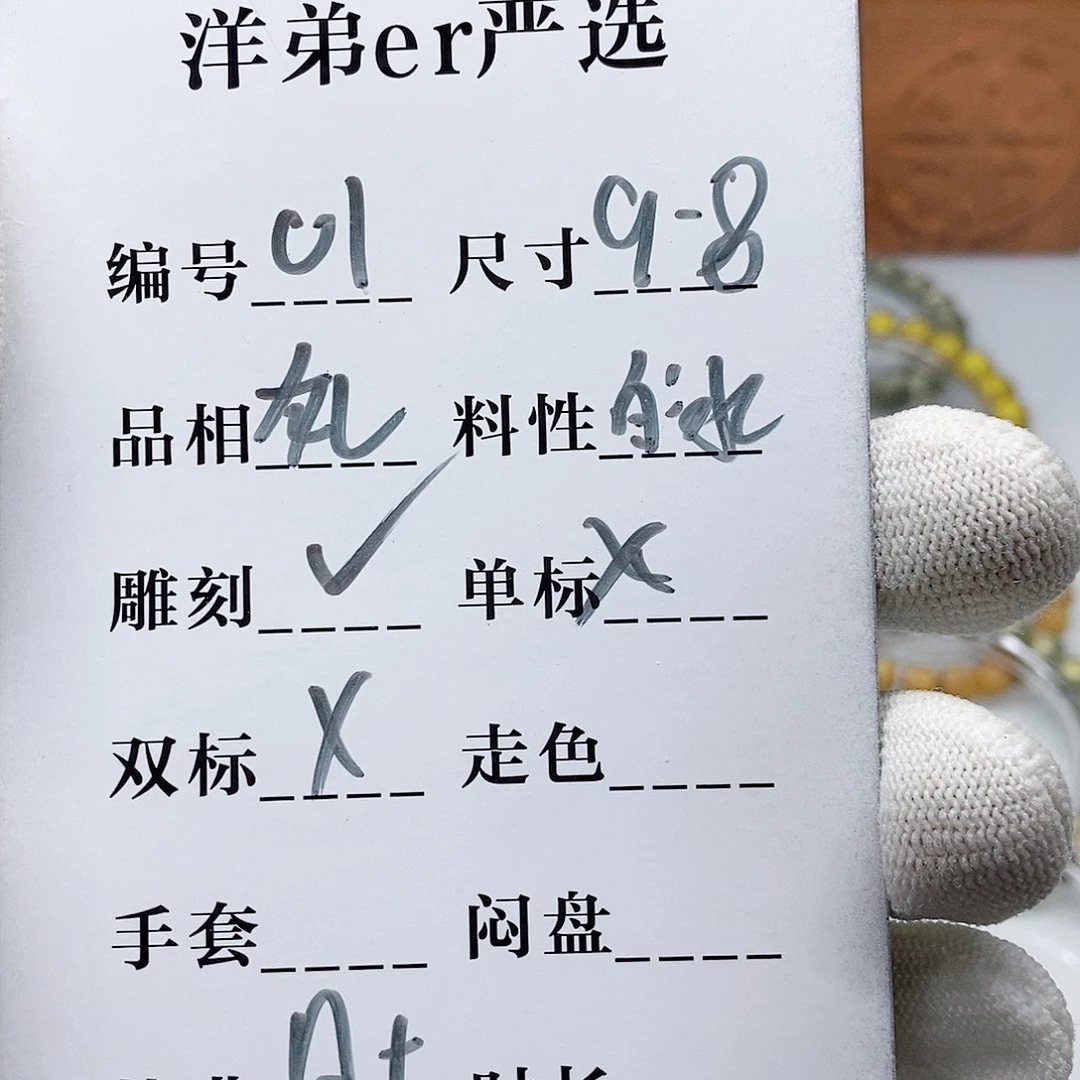 洋弟er严选
编号 01 尺寸 9-8
品相 料性
雕刻 ✓ 单标 X
双标 X 走色
手套 闷盘
A+